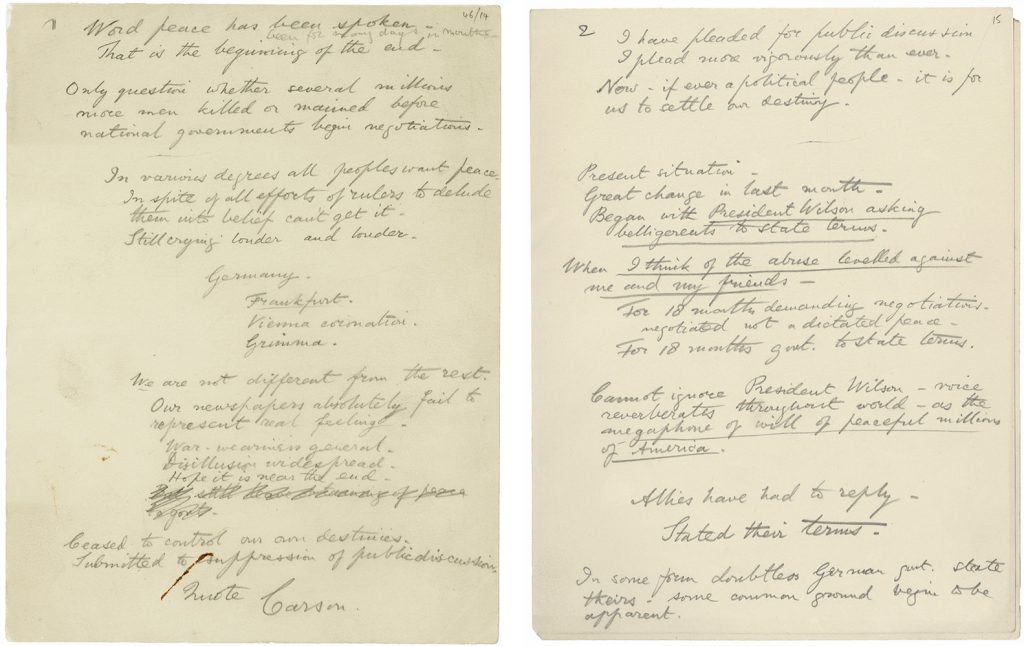 46/14
Word peace has been spoken -
been for many days in months -
That is the beginning of the end -
Only question whether several millions
more men killed or maimed before
national governments begin negotiations -
In various degrees all peoples want peace.
In spite of all efforts of rulers to delude
them into belief cant get it -
Still crying louder and louder -
Germany.
Frankfurt.
Vienna coronation.
Grimma.
We are not different from the rest.
Our newspapers absolutely fail to
represent real feelings -
War-weariness general.
Disillusion widespread.
Hope it is near the end.
Ceased to control our own destinies.
Submitted to suppression of public discussion.
Quote Carson.
15
2
I have pleaded for public discussion
I plead more vigorously than ever.
Now - if ever a political people - it is for
us to settle our destiny.
Present situation -
Great change in last month -
Began with President Wilson asking
belligerents to state terms.
When I think of the abuse levelled against
me and my friends -
For 18 months demanding negotiations -
negotiated not a dictated peace -
For 18 months govt. to state terms.
Cannot ignore President Wilson - voice
reverberates throughout world - as the
megaphone of will of peaceful millions
of America.
Allies have had to reply -
Stated their terms -
In some form doubtless German govt. state
theirs - some common ground begin to be
apparent.